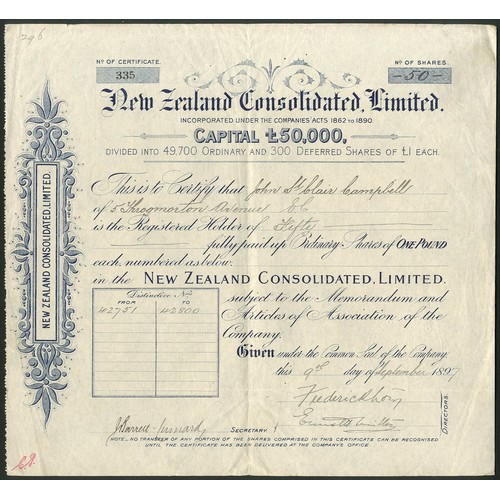 296
Nº OF CERTIFICATE.
335
Nº OF SHARES.
-50-
New Zealand Consolidated, Limited.
INCORPORATED UNDER THE COMPANIES' ACTS 1862 TO 1890.
CAPITAL £50,000,
DIVIDED INTO 49,700 ORDINARY AND 300 DEFERRED SHARES OF £1 EACH.
This is to Certify that John St Clair Campbell
of 5 Throgmorton Avenue E.C.
is the Registered Holder of Fifty
fully paid up Ordinary Shares of ONE POUND
each, numbered as below.
in the NEW ZEALAND CONSOLIDATED, LIMITED.
subject to the Memorandum and
Articles of Association of the
Company.
Distinctive Nos
FROM TO
42751 42800
Given under the Common Seal of the Company,
this 9th day of September 1897
Frederick
DIRECTORS.
SECRETARY
(NOTE, NO TRANSFER OF ANY PORTION OF THE SHARES COMPRISED IN THIS CERTIFICATE CAN BE RECOGNISED
UNTIL THE CERTIFICATE HAS BEEN DELIVERED AT THE COMPANY'S OFFICE.)
NEW ZEALAND CONSOLIDATED, LIMITED.